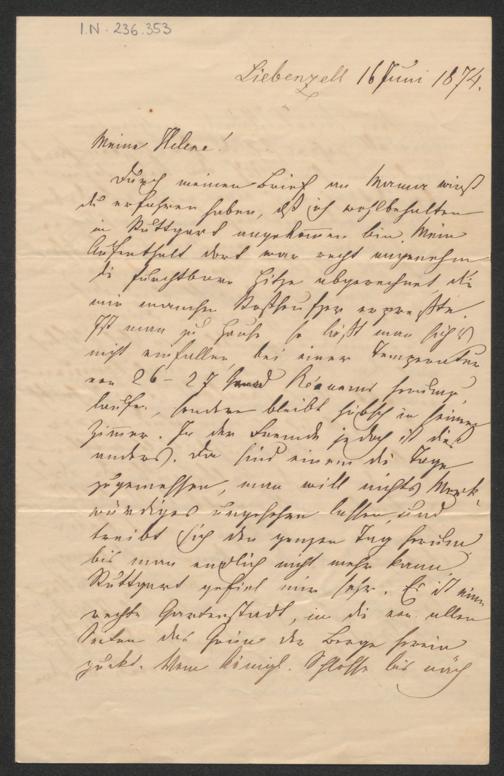 I.N. 236.353
Liebenzell 16 Juni 1874.
Meine Helene!
Durch meinen Brief an Mama wirst
du erfahren haben, daß ich wohlbehalten
in Stuttgart angekommen bin. Mein
Aufenthalt dort war recht angenehm
die furchtbare Hitze abgerechnet die
mir manchen Stoßseufzer erpreßte.
Ist man zu Hause so läßt man sich's
nicht einfallen bei einer Temperatur
von 26 - 27 Grad Réaumur herumzu
laufen, sondern bleibt hübsch in seinem
Zimmer. In der Fremde jedoch ist dieß
anders. Da sind einem die Tage
zugemessen, man will nichts Merk-
würdiges ungesehen lassen, und
treibt sich den ganzen Tag herum
bis man endlich nicht mehr kann.
Stuttgart gefiel mir sehr. Es ist eine
rechte Gartenstadt, in die von allen
Seiten das Grün der Berge herein
guckt. Vom königl. Schlosse bis nach